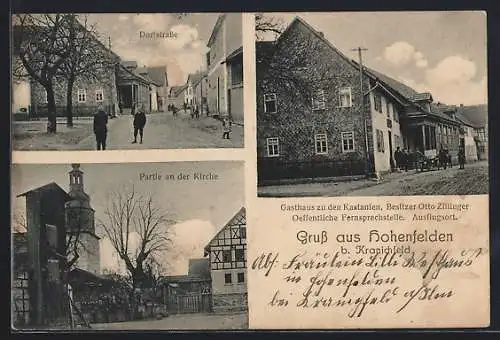 Dorfstraße
Partie an der Kirche
Gasthaus zu den Kastanien, Besitzer Otto Zillinger
Oeffentliche Fernsprechstelle. Ausflugsort.
Gruß aus Hohenfelden
b. Kranichfeld
Abs: Fräulein Lilli
in Hohenfelden
bei Kranichfeld